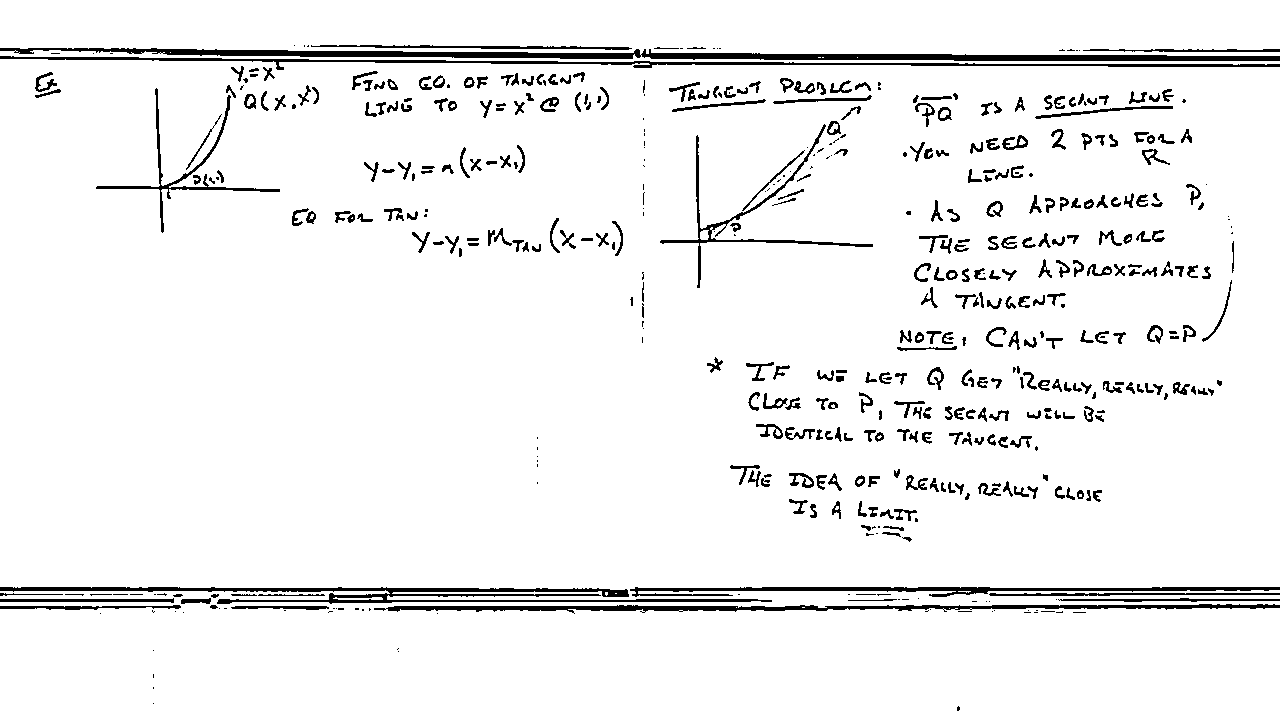 Ex
Y=X²
Q(X,X²)
P(1,1)
1
FIND EQ. OF TANGENT
LINE TO Y=X² @ (1,1)
Y-Y₁=m(X-X₁)
EQ FOR TAN:
Y-Y₁=M_TAN(X-X₁)
TANGENT PROBLEM:
Q
P
PQ IS A SECANT LINE.
·YOU NEED 2 PTS FOR A
LINE.
· AS Q APPROACHES P,
THE SECANT MORE
CLOSELY APPROXIMATES
A TANGENT.
NOTE: CAN'T LET Q=P
* IF WE LET Q GET "REALLY, REALLY, REALLY"
CLOSE TO P, THE SECANT WILL BE
IDENTICAL TO THE TANGENT.
THE IDEA OF "REALLY, REALLY" CLOSE
IS A LIMIT.